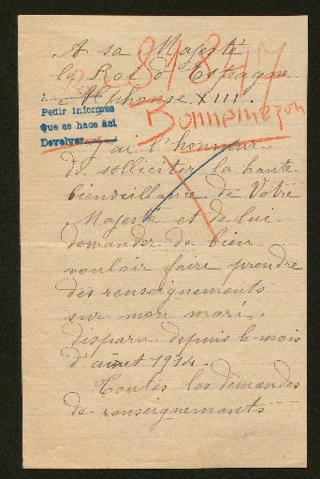 A sa Majesté
le Roi d'Espagne
Alphonse XIII.
81847
Bonnemezon
Pedir informes
Que se hace así
Devolver
J'ai l'honneur
de solliciter la haute
bienveillance de Votre
Majesté et de lui
demander de bien
vouloir faire prendre
des renseignements
sur mon mari,
disparu depuis le mois
d'août 1914.
Toutes les demandes
de renseignements